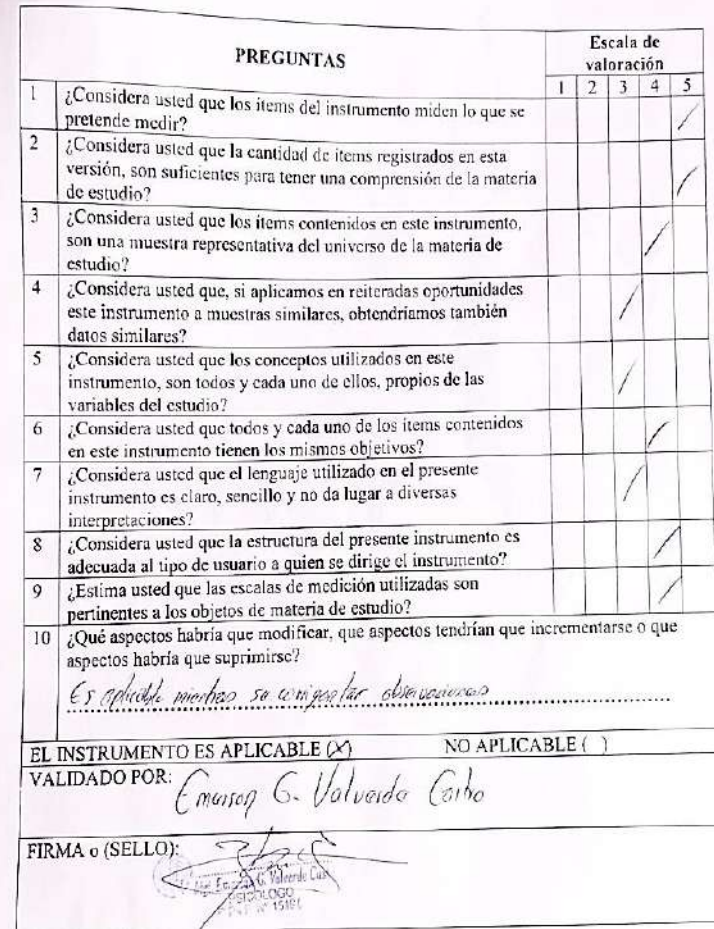 PREGUNTAS
Escala de
valoración
1 2 3 4 5
1 ¿Considera usted que los items del instrumento miden lo que se
pretende medir? /
2 ¿Considera usted que la cantidad de items registrados en esta
versión, son suficientes para tener una comprensión de la materia
de estudio? /
3 ¿Considera usted que los ítems contenidos en este instrumento,
son una muestra representativa del universo de la materia de
estudio? /
4 ¿Considera usted que, si aplicamos en reiteradas oportunidades
este instrumento a muestras similares, obtendríamos también
datos similares? /
5 ¿Considera usted que los conceptos utilizados en este
instrumento, son todos y cada uno de ellos, propios de las
variables del estudio? /
6 ¿Considera usted que todos y cada uno de los ítems contenidos
en este instrumento tienen los mismos objetivos? /
7 ¿Considera usted que el lenguaje utilizado en el presente
instrumento es claro, sencillo y no da lugar a diversas
interpretaciones? /
8 ¿Considera usted que la estructura del presente instrumento es
adecuada al tipo de usuario a quien se dirige el instrumento? /
9 ¿Estima usted que las escalas de medición utilizadas son
pertinentes a los objetos de materia de estudio? /
10 ¿Qué aspectos habría que modificar, que aspectos tendrían que incrementarse o que
aspectos habría que suprimirse?
Es aplicable mientras se observaciones
EL INSTRUMENTO ES APLICABLE (X) NO APLICABLE ( )
VALIDADO POR: Emerson G. Valverde
FIRMA o (SELLO):
G. Valverde
PSICOLOGO